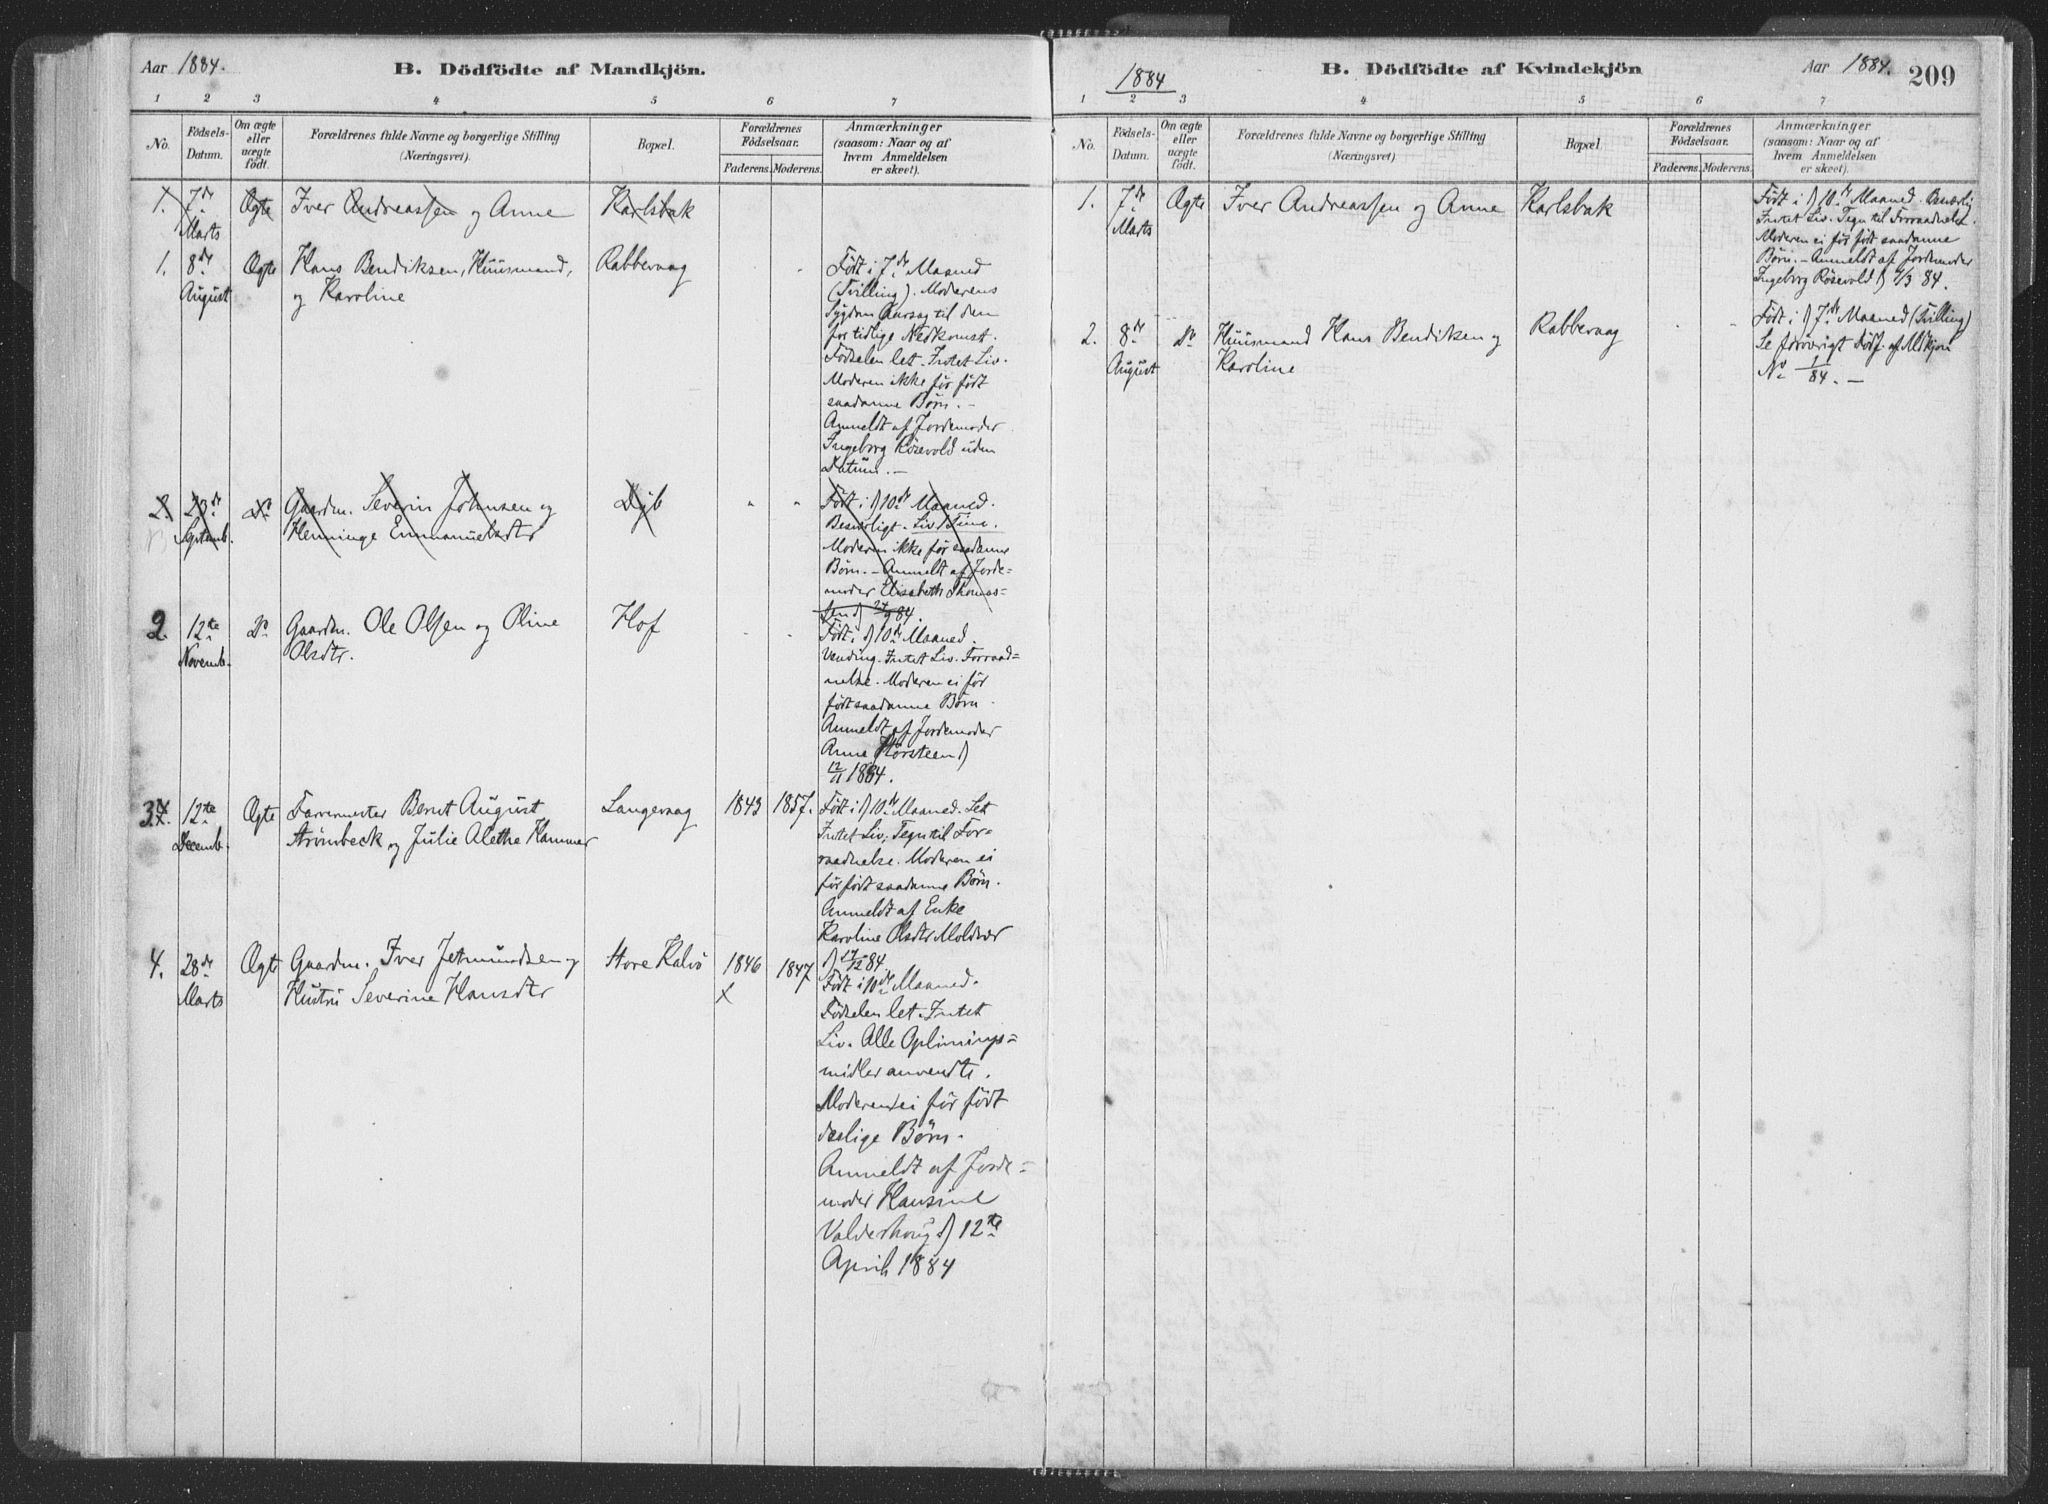 Aar 1884.
B. Dödfödte af Mandkjön.
1 2 3 4 5 6 7
No.
Födsels-
Datum.
Om ægte
eller
uægte
födt.
Forældrenes fulde Navne og borgerlige Stilling
(Næringsvei).
Bopæl.
Forældrenes
Födselsaar.
Faderens. Moderens.
Anmærkninger
(saasom: Naar og af
hvem Anmeldelsen
er skeet).
1. 7de Marts Ægte Iver Andreassen og Anne Karlsbak
1. 8de August Ægte Hans Bendiksen, Huusmand,
og Karoline
Rabbevaag
Født i 7de Maaned
(Tvilling). Moderens
Sygdom Aarsag til den
for tidlige Nedkomst.
Fødselen let. Intet Liv.
Moderen ikke før født
saadanne Børn. -
Anmeldt af Jordemoder
Ingeborg Rösevold uden
Datum. -
2. 23de Septemb. Do Gaardm. Severin Johnsen og
Henninge Emmanuelsdtr
Dyb
Født i 10de Maaned.
Besværligt. Liv 1 Time.
Moderen ikke før saadanne
Børn. - Anmeldt af Jorde=
moder Elisabeth Thomas=
sen
2. 12te Novemb. Do Gaardm. Ole Olsen og Oline
Olsdtr.
Hof
Født i 10de Maaned.
Vending. Intet Liv. Forraad=
nelse. Moderen ei før
født saadanne Børn.
Anmeldt af Jordemoder
Anne Horsteen
12/11 1884.
3. 12te Decemb. Ægte Farvermester Bernt August
Strömbeck og Julie Alethe Hammer
Langevaag
1843 1857.
Født i 10de Maaned. Let
Intet Liv; Tegn til For=
raadnelse. Moderen ei
før født saadanne Børn.
Anmeldt af Enke
Karoline Olsdtr Moldvær
4. 28de Marts Ægte Gaardm. Iver Jetmundsen og
Hustru Severine Hansdtr
Store Kalvö
1846 1847
x
Født i 10de Maaned.
Fødselen let. Intet
Liv. Alle Oplivnings=
midler anvendte.
Moderen ei før født
deslige Børn.
Anmeldt af Jorde=
moder Hansine
Valderhoug 12te
April 1884
1884
B. Dödfödte af Kvindekjön
Aar 1884.
209
1 2 3 4 5 6 7
No.
Födsels-
Datum.
Om ægte
eller
uægte
födt.
Forældrenes fulde Navne og borgerlige Stilling
(Næringsvei)
Bopæl.
Forældrenes
Födselsaar.
Faderens. Moderens.
Anmærkninger
(saasom: Naar og af
hvem Anmeldelsen
er skeet).
1. 7de Marts Ægte Iver Andreassen og Anne Karlsbak
Født i 10de Maaned. Besværlig
Intet Liv. Tegn til Forraadnelse.
Moderen ei før født saadanne
Børn. - Anmeldt af Jordemoder
Ingeborg Rösevold 84.
2. 8de August Do Huusmand Hans Bendiksen og
Karoline
Rabbevaag
Født i 7de Maaned (Tvilling)
Se forøvrigt Dödf. af Mdkjön
No 1/84. -